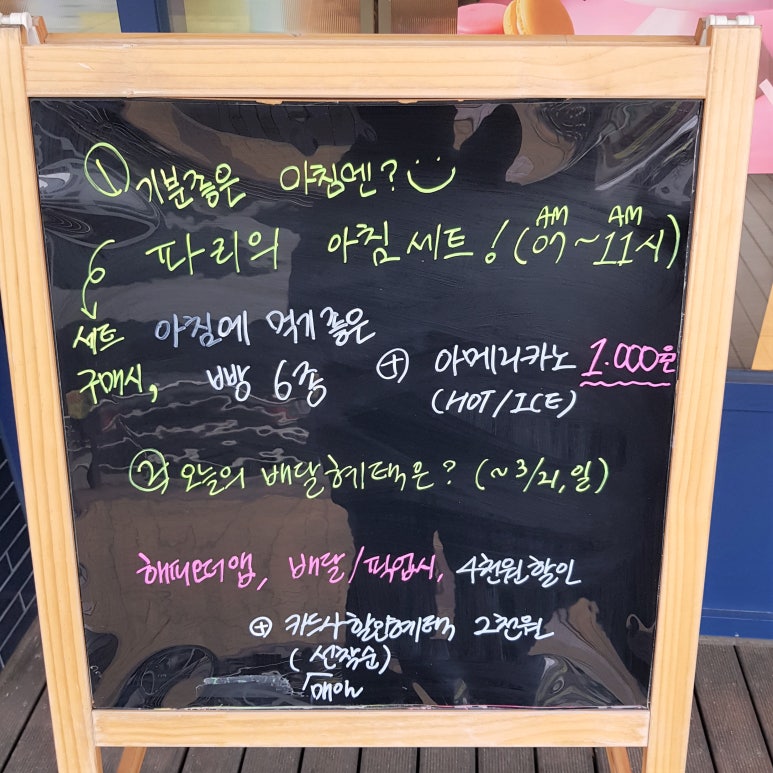 ① 기분좋은 아침엔?
파리의 아침세트! (AM 07 ~ AM 11시)
세트 구매시,
아침에 먹기 좋은
빵 6종
⊕ 아메리카노 1.000원
(HOT/ICE)
② 오늘의 배달혜택은? (~3/21, 일)
해피앱, 배달/픽업시, 4천원할인
⊕ 카드사할인혜택 2천원
(선착순)
매일